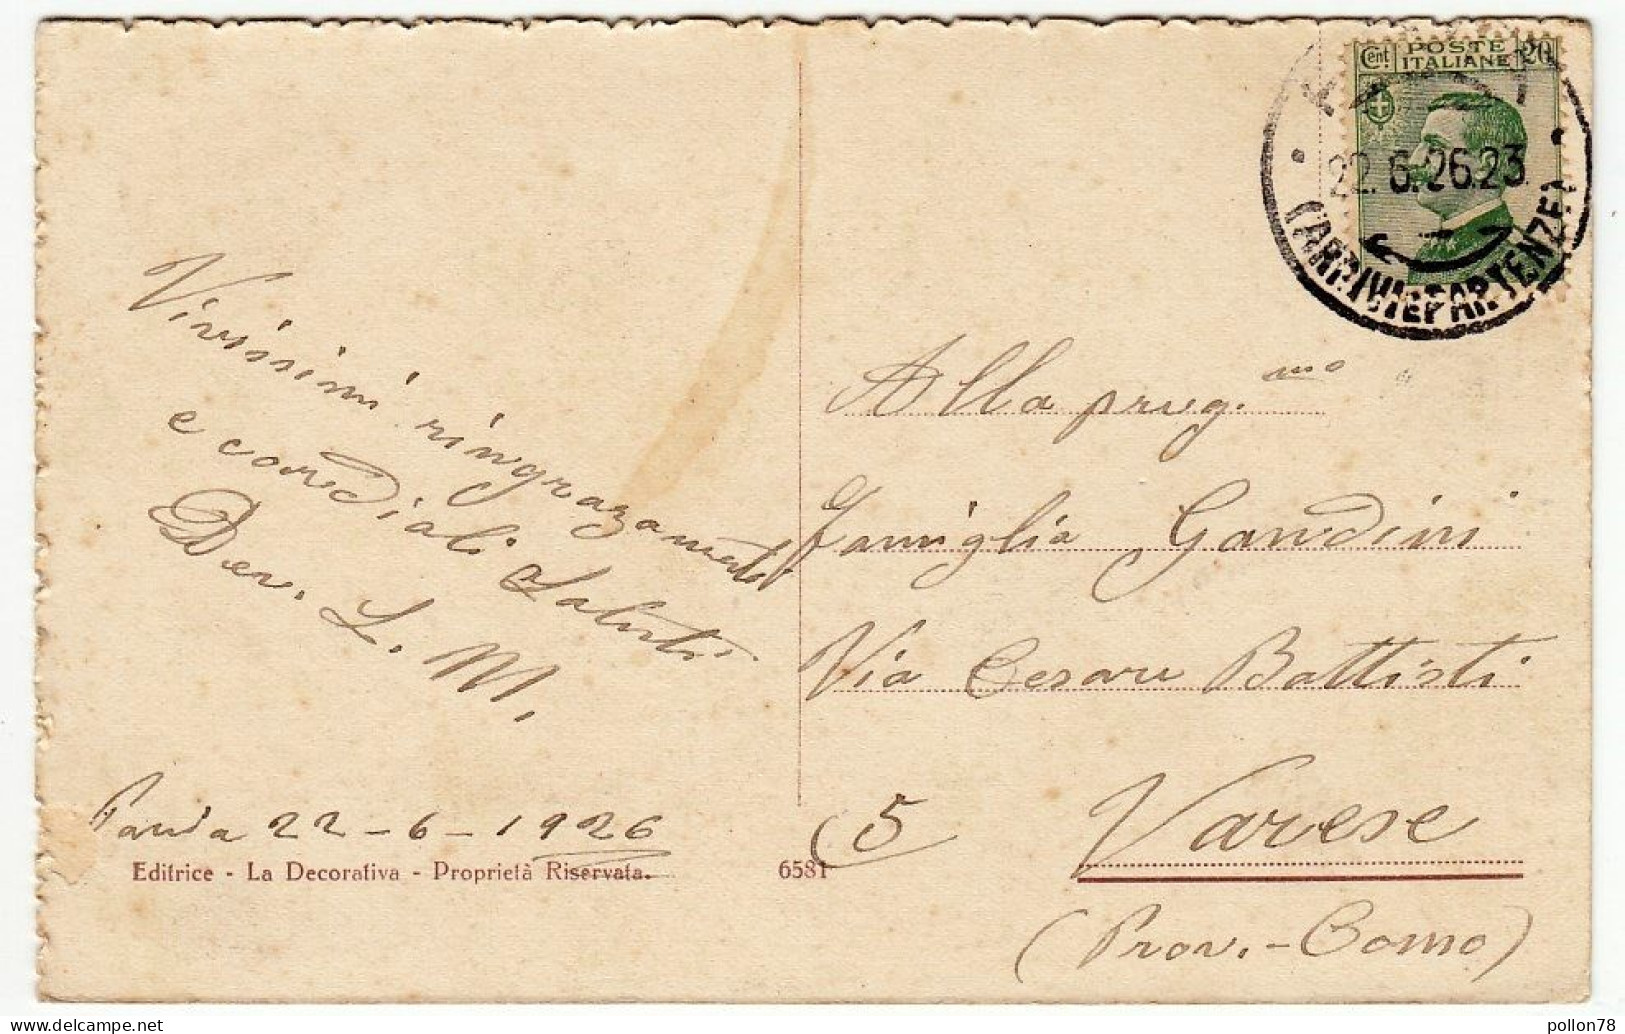 Cent. POSTE ITALIANE 20
22.6.26.23
(ARRIVI E PARTENZE)
Vivissimi ringrazamenti
e cordiali saluti
Dev. L. M.
Pavia 22-6-1926
Editrice - La Decorativa - Proprietà Riservata.
6581
Alla preg.mo
Famiglia Gandini
Via Cesare Battisti
5
Varese
(Prov. - Como)
pollon78